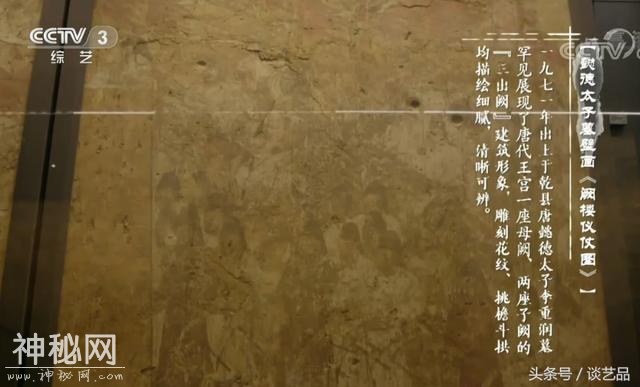 CCTV 3
综艺
【懿德太子墓壁画《阙楼仪仗图》】
一九七一年出土于乾县唐懿德太子李重润墓
罕见展现了唐代王宫一座母阙、两座子阙的
『三出阙』建筑形象，雕刻花纹、挑檐斗拱
均描绘细腻，清晰可辨。
神秘网
www.神秘网.com
头条号/谈艺品